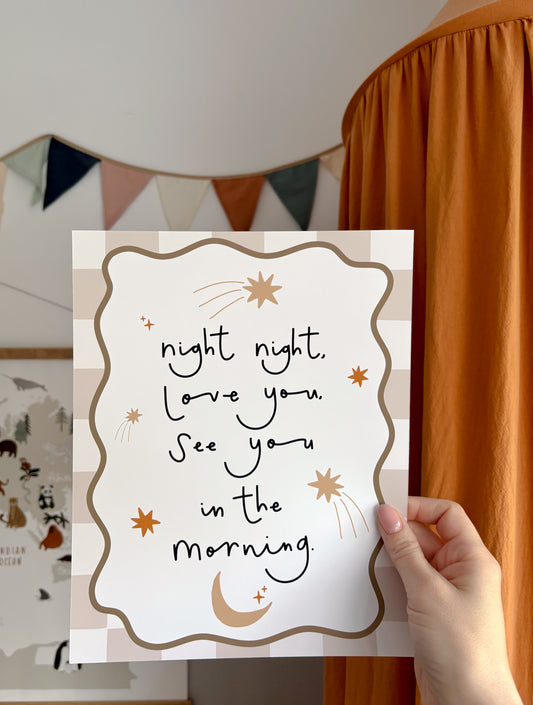 night night,
love you,
see you
in the
morning.
INDIAN
OCEAN